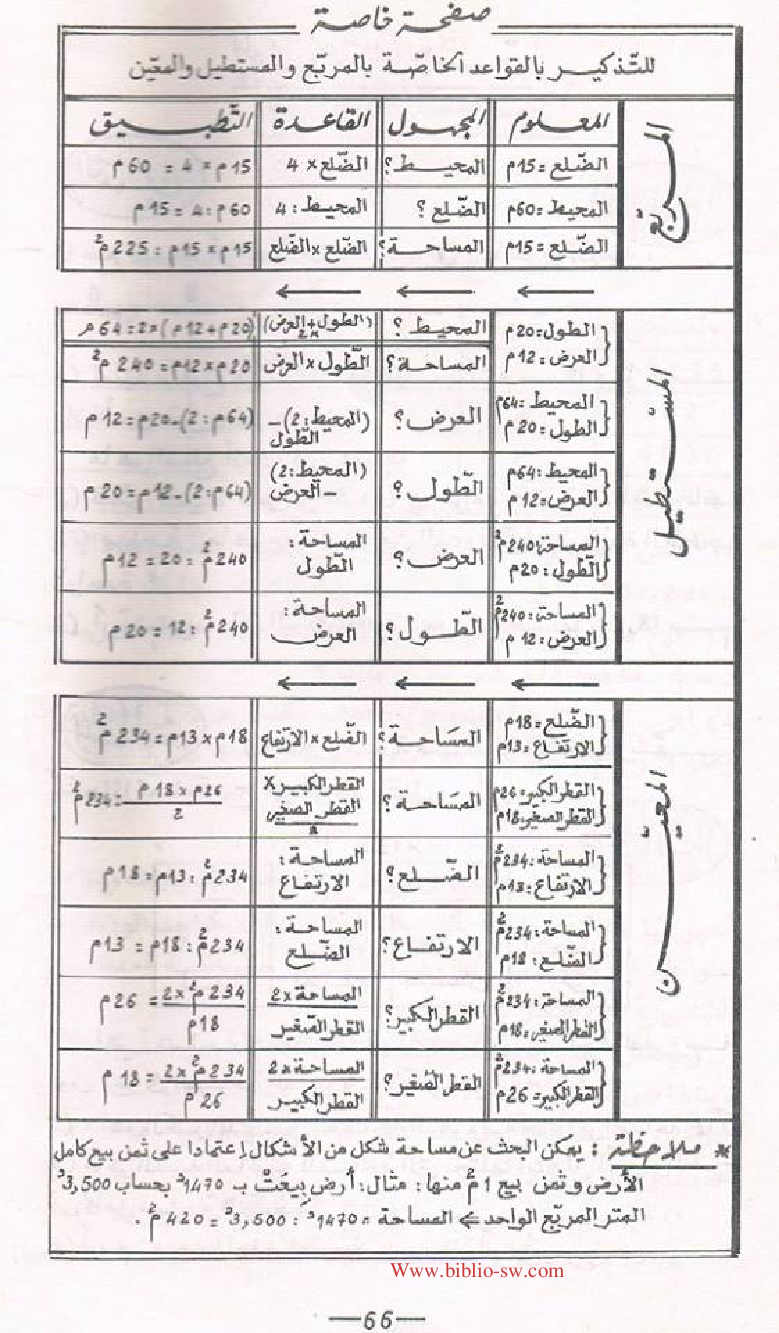 صفحة خاصة
للتّذكير بالقواعد الخاصّة بالمربّع والمستطيل والمعيّن
المربّع
المعلوم | المجهول | القاعدة | التّطبيق
الضّلع = 15م | المحيط؟ | الضّلع × 4 | 15م × 4 = 60م
المحيط = 60م | الضّلع؟ | المحيط : 4 | 60م : 4 = 15م
الضّلع = 15م | المساحة؟ | الضّلع × الضّلع | 15م × 15م = 225م²
المستطيل
الطول = 20م
العرض = 12م
المحيط؟ | (الطول + العرض) ×2 | (20م + 12م) ×2 = 64م
المساحة؟ | الطّول × العرض | 20م × 12م = 240م²
المحيط = 64م
الطّول = 20م
العرض؟ | (المحيط : 2) – الطّول | (64م : 2) – 20م = 12م
المحيط = 64م
العرض = 12م
الطّول؟ | (المحيط : 2) – العرض | (64م : 2) – 12م = 20م
المساحة = 240م²
الطّول = 20م
العرض؟ | المساحة : الطّول | 240م² : 20 = 12م
المساحة = 240م²
العرض = 12م
الطّول؟ | المساحة : العرض | 240م² : 12 = 20م
المعيّن
الضّلع = 18م
الارتفاع = 13م
المساحة؟ | الضّلع × الارتفاع | 18م × 13م = 234م²
القطر الكبير = 26م
القطر الصغير = 18م
المساحة؟ | القطر الكبير × القطر الصغير / 2 | 26م × 18م / 2 = 234م²
المساحة = 234م²
الارتفاع = 13م
الضّلع؟ | المساحة : الارتفاع | 234م² : 13م = 18م
المساحة = 234م²
الضّلع = 18م
الارتفاع؟ | المساحة : الضّلع | 234م² : 18م = 13م
المساحة = 234م²
القطر الصغير = 18م
القطر الكبير؟ | المساحة ×2 / القطر الصّغير | 234م² ×2 / 18م = 26م
المساحة = 234م²
القطر الكبير = 26م
القطر الصّغير؟ | المساحة ×2 / القطر الكبير | 234م² ×2 / 26م = 18م
* ملاحظة : يمكن البحث عن مساحة شكل من الأشكال إعتمادا على ثمن بيع كامل
الأرض وثمن بيع 1م² منها : مثال : أرض بيعت ب 1470د بحساب 3,500د
المتر المربّع الواحد ⇐ المساحة = 1470د : 3,500د = 420م².
Www.biblio-sw.com
—66—